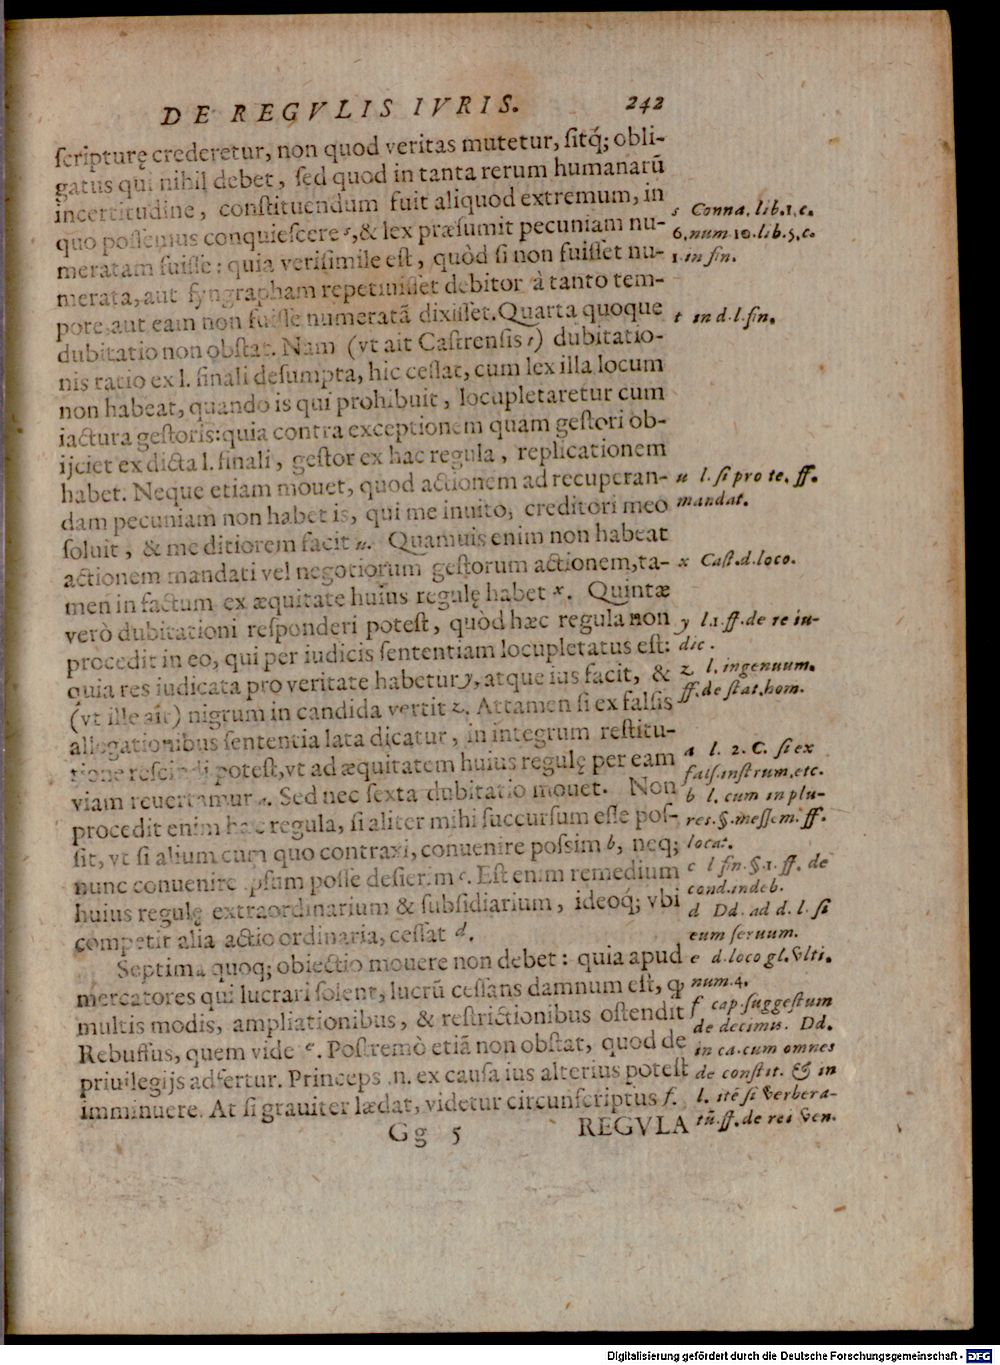 DE REGVLIS IVRIS. 242
ſcripturę crederetur, non quod veritas mutetur, ſitq́; obli-
gatus qui nihil debet, ſed quod in tanta rerum humanarũ
incertitudine, conſtituendum fuit aliquod extremum, in
quo poſſemus conquieſcere s, & lex præſumit pecuniam nu-
meratam fuiſſe: quia veriſimile eſt, quòd ſi non fuiſſet nu-
merata, aut ſyngrapham repetiuiſſet debitor à tanto tem-
pore aut eam non fuiſſe numeratã dixiſſet. Quarta quoque
dubitatio non obſtat. Nam (vt ait Caſtrenſis t) dubitatio-
nis ratio ex l. finali deſumpta, hic ceſſat, cum lex illa locum
non habeat, quando is qui prohibuit, locupletaretur cum
iactura geſtoris: quia contra exceptionem quam geſtori ob-
ijciet ex dicta l. finali, geſtor ex hac regula, replicationem
habet. Neque etiam mouet, quod actionem ad recuperan-
dam pecuniam non habet is, qui me inuito, creditori meo
ſoluit, & me ditiorem facit u. Quamuis enim non habeat
actionem mandati vel negotiorum geſtorum actionem, ta-
men in factum ex æquitate huius regulę habet x. Quintæ
verò dubitationi reſponderi poteſt, quòd hæc regula non
procedit in eo, qui per iudicis ſententiam locupletatus eſt:
quia res iudicata pro veritate habetur y, atque ius facit, &
(vt ille ait) nigrum in candida vertit z. Attamen ſi ex falſis
allegationibus ſententia lata dicatur, in integrum reſtitu-
tione reſcindi poteſt, vt ad æquitatem huius regulę per eam
viam reuertamur a. Sed nec ſexta dubitatio mouet. Non
procedit enim hæc regula, ſi aliter mihi ſuccurſum eſſe poſ-
ſit, vt ſi alium cum quo contraxi, conuenire poſsim b, neq;
nunc conuenire ipſum poſſe deſierim c. Eſt enim remedium
huius regulę extraordinarium & ſubſidiarium, ideoq́; vbi
competit alia actio ordinaria, ceſſat d.
Septima quoq; obiectio mouere non debet: quia apud
mercatores qui lucrari ſolent, lucrũ ceſſans damnum eſt, ꝙ
multis modis, ampliationibus, & reſtrictionibus oſtendit
Rebuffus, quem vide e. Poſtremò etiã non obſtat, quod de
priuilegijs adfertur. Princeps .n. ex cauſa ius alterius poteſt
imminuere. At ſi grauiter lædat, videtur circunſcriptus f.
Gg 5 REGVLA
s Conna. lib.1. c.
6. num 10. lib. 5. c.
1. in fin.
t in d. l. fin.
u l. ſi pro te. ff.
mandat.
x Caſt. d. loco.
y l.1. ff. de re iu-
dic.
z l. ingenuum.
ff. de ſtat. hom.
a l. 2. C. ſi ex
falſ. inſtrum, etc.
b l. cum in plu-
res. §. meſſem. ff.
locat.
c l fin. §.1. ff. de
cond. indeb.
d Dd. ad d. l. ſi
eum ſeruum.
e d. loco gl. vlti.
num. 4.
f cap. ſuggeſtum
de decimis. Dd.
in ca. cum omnes
de conſtit. & in
l. itẽ ſi verbera-
tũ. ff. de rei ven.
Digitalisierung gefördert durch die Deutsche Forschungsgemeinschaft - DFG